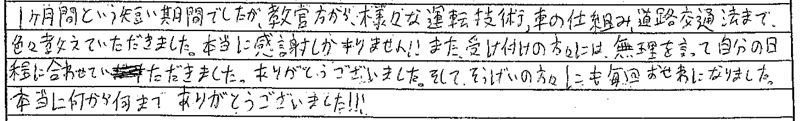 1ヶ月間という短い期間でしたが、教官方から、様々な運転技術、車の仕組み、道路交通法まで、
色々教えていただきました。本当に感謝しかありません!! また、受け付けの方々には、無理を言って自分の日
程に合わせていただきました。ありがとうございました。そして、そうげいの方々にも毎回おせわになりました。
本当に何から何まで ありがとうございました!!!